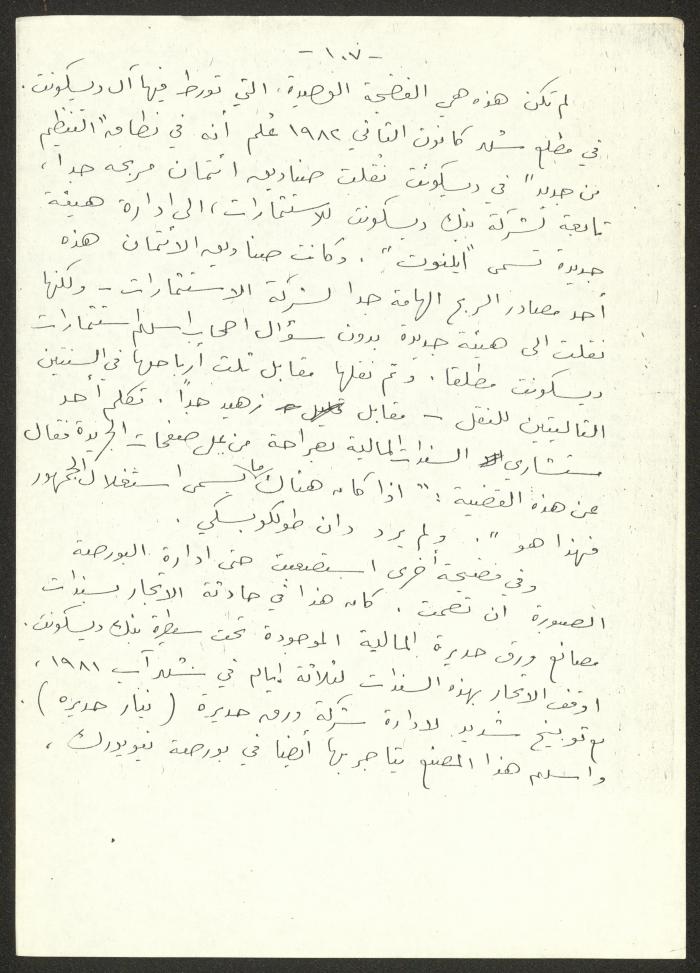 - ١٠٧ -
لم تكن هذه هي الفضيحة الوحيدة، التي تورط فيها آل ديسكونت.
في مطلع شهر كانون الثاني ١٩٨٢ عُلم أنه في نطاق "التنظيم
من جديد" في ديسكونت نُقلت صناديق ائتمان مربحه جداً،
تابعة لشركة بنك ديسكونت للاستثمارات، الى ادارة هيئة
جديدة تسمى "ايلنوت". وكانت صناديق الائتمان هذه
أحد مصادر الربح الهامة جدا لشركة الاستثمارات - ولكنها
نقلت الى هيئة جديدة بدون سؤال اصحاب اسهم استثمارات
ديسكونت مطلقا. وتم نقلها مقابل ثلث أرباحها في السنتين
التاليتين للنقل - مقابل زهيد جداً. تكلم أحد
مستشاري السندات المالية بصراحة من على صفحات الجريدة فقال
عن هذه القضية: "اذا كان هناك ما يسمى استغلال الجمهور
فهذا هو". ولم يرد دان طولكوبسكي.
وفي فضيحة أخرى استصعبت حتى ادارة البورصة
الصبورة ان تصمت. كان هذا في حادثة الاتجار بسندات
مصانع ورق حديرة المالية الموجودة تحت سيطرة بنك ديسكونت.
اوقف الاتجار بهذه السندات لثلاثة ايام في شهر آب ١٩٨١،
مع توبيخ شديد لادارة شركة ورق حديرة (نيار حديره).
واسهم هذا المصنع يتاجر بها أيضا في بورصة نيويورك،